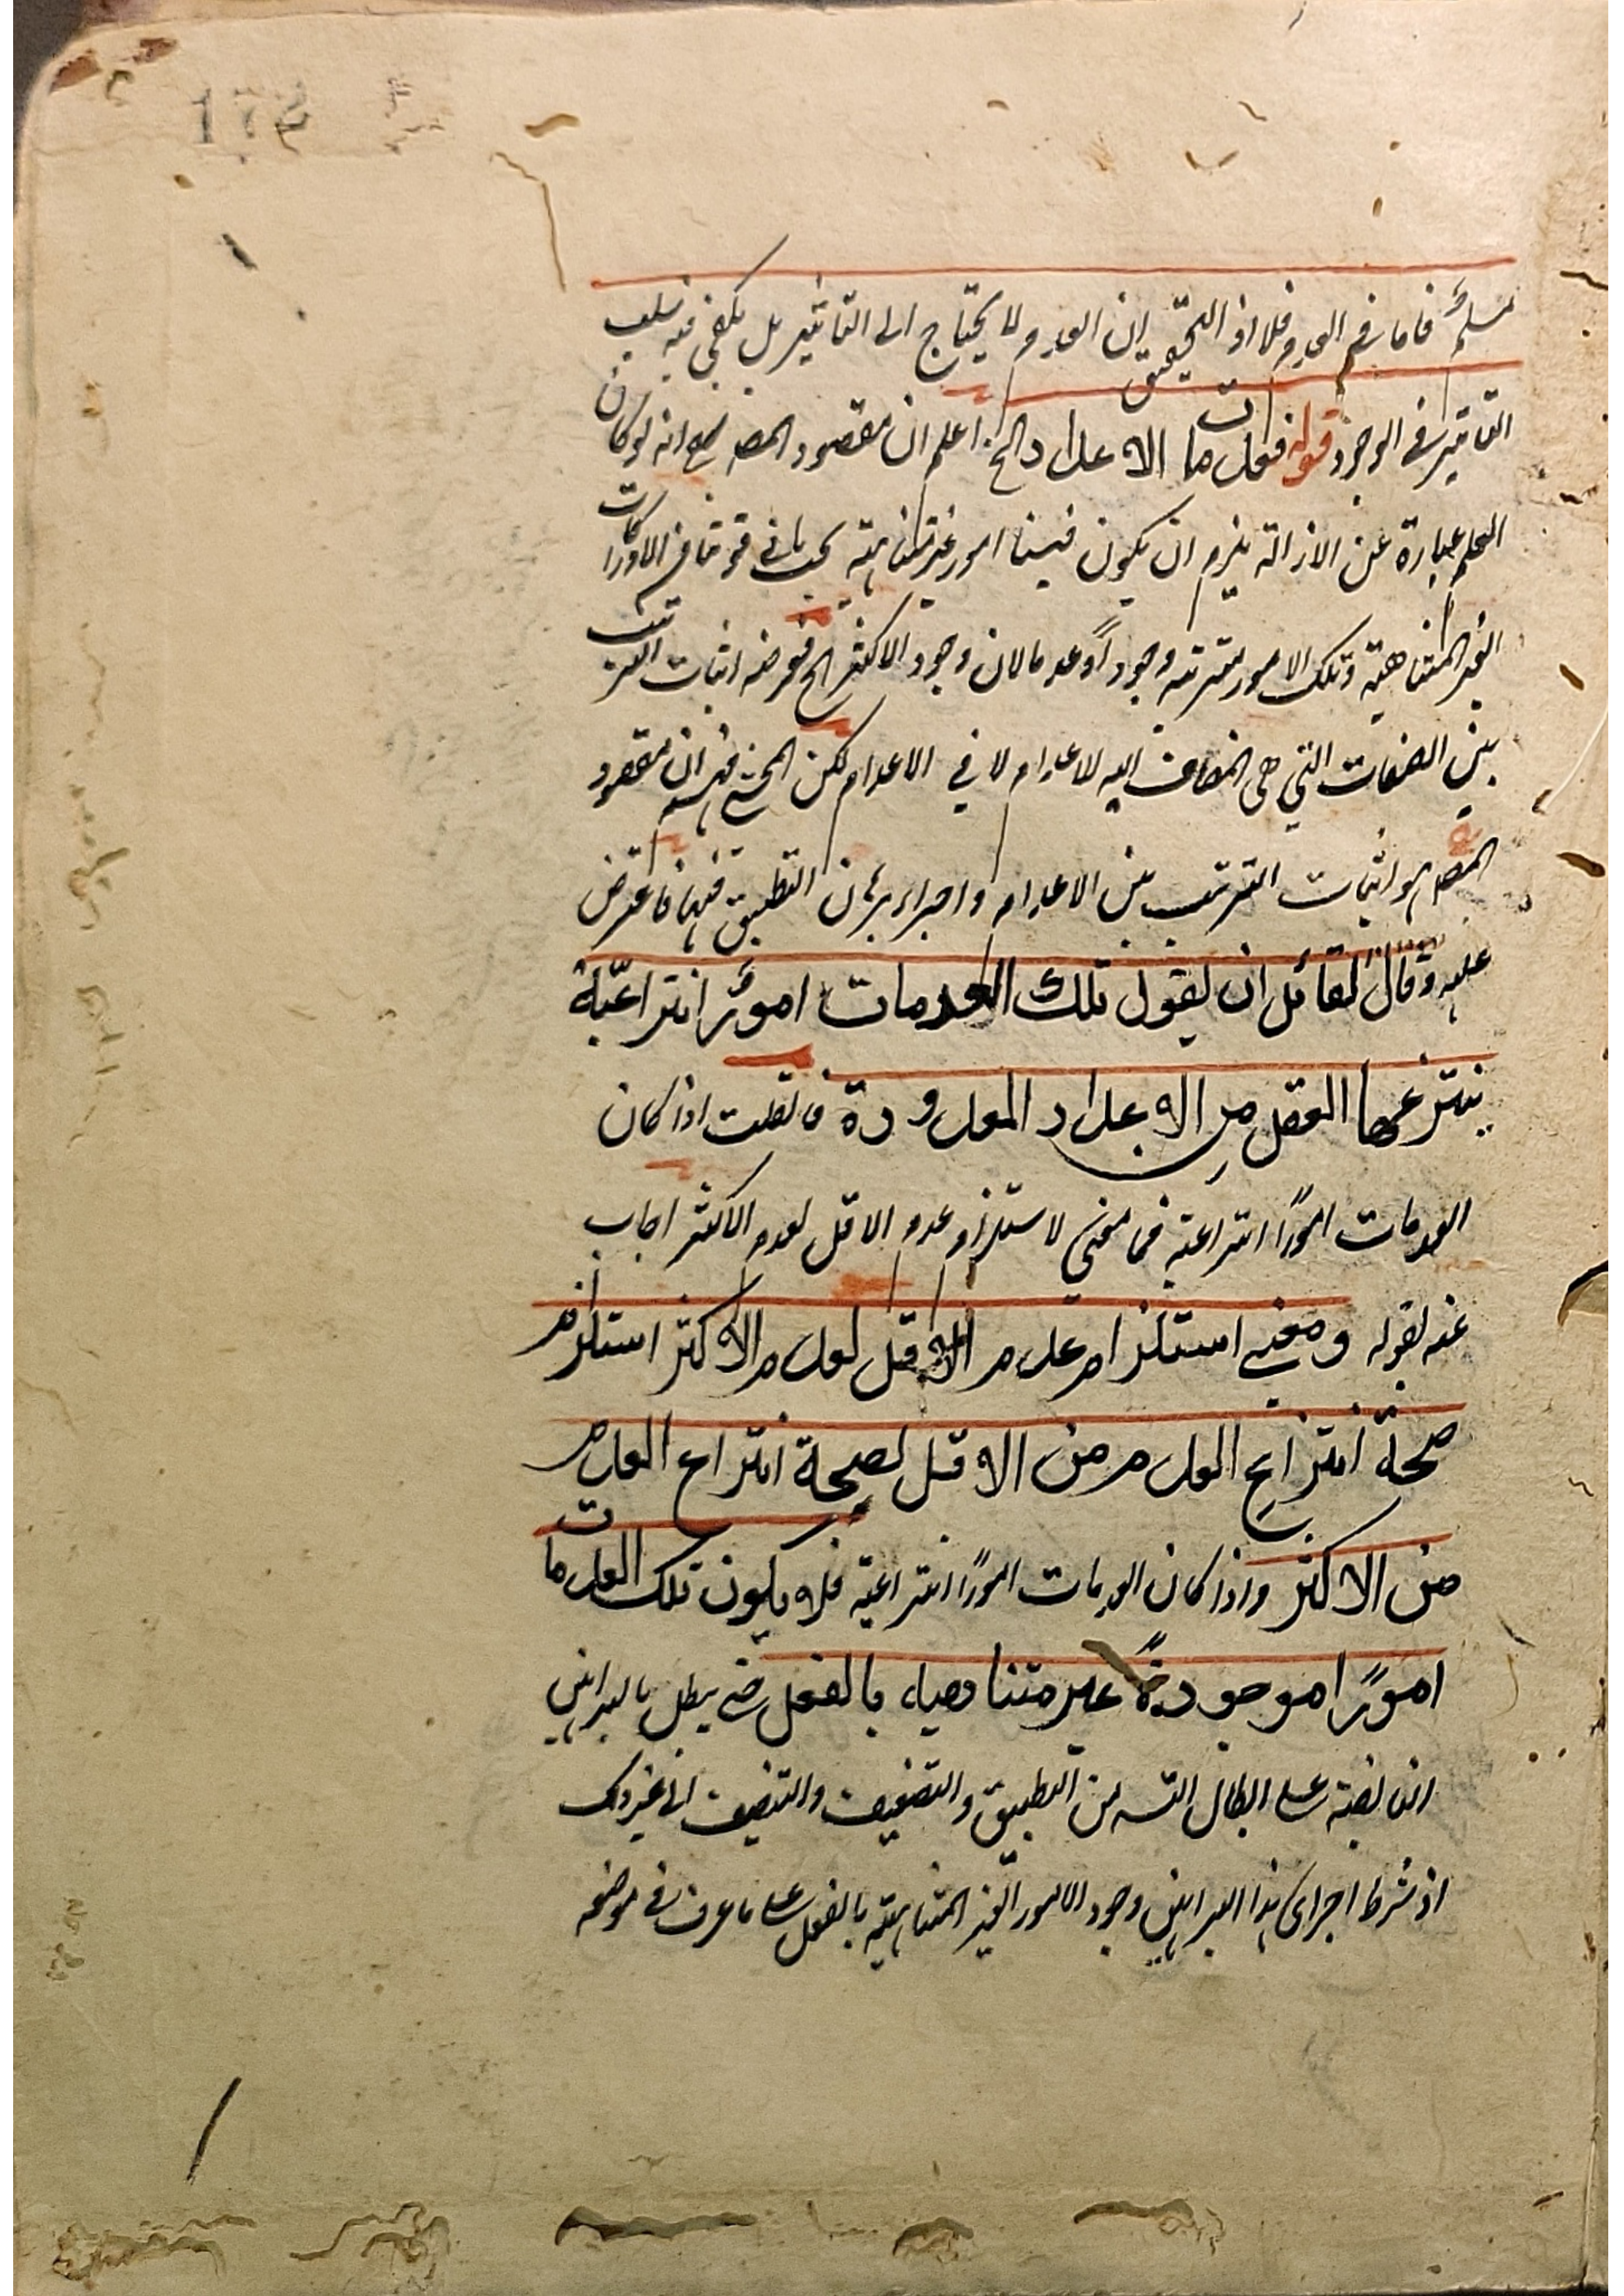 172
مسلم فاما في العدم فلا اذ التحقيق ان العدم لا يحتاج الى التاثير بل يكفي فيه سلب
التاثير في الوجود قوله فعدمات الاعداد الخ اعلم ان مقصود المصـ انه لو كان
العلم عبارة عن الازالة يلزم ان يكون فينا امور غير متناهية بحسب ما في قوتنا من الادراكات
الغير المتناهية وتلك الامور مترتبة وجوداً وعدما لان وجود الاكثر الخ فغرضه اثبات الترتيب
بين الصفات التي هي المضاف اليه للاعدام لا في الاعدام لكن المحشي فهم ان مقصود
المصـ هو اثبات الترتيب بين الاعدام و اجراء برهان التطبيق فيها فاعترض
عليه وقال لقائل ان يقول تلك العدمات امورٌ انتزاعيّة
ينتزعها العقل من الاعداد المعدودة فان قلت اذا كان
العدمات امورًا انتزاعية فما معنى لاستلزام عدم الاقل لعدم الاكثر اجاب
عنه بقوله ومعنى استلزام عدم الاقل لعدم الاكثر استلزام
صحة انتزاع العدم من الاقل لصحة انتزاع العدم
من الاكثر واذا كان العدمات امورًا انتزاعية فلا يكون تلك العدمات
امورًا موجودةً غير متناهية بالفعل حتى يبطل بالبراهين
الناهضة على ابطال التسـ من التطبيق والتضعيف والتنصيف الى غير ذلك
اذ شرط اجراى هذا البراهين وجود الامور الغير المتناهية بالفعل على ما عرف في موضعه